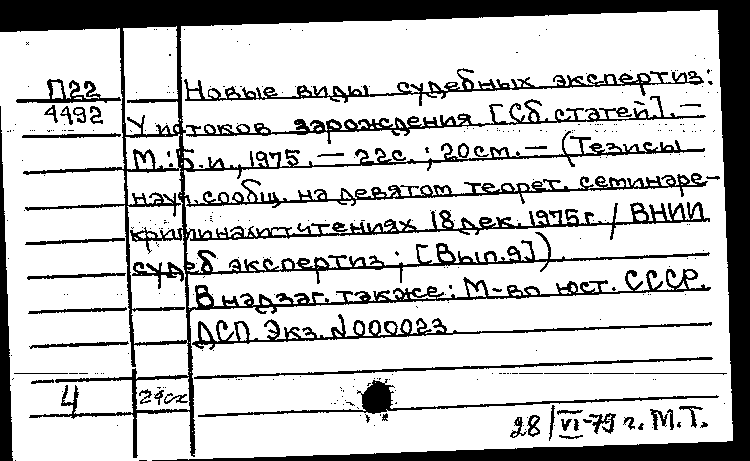 П22
4492
Новые виды судебных экспертиз:
У истоков зарождения [Сб. статей]. —
М.: Б.и., 1975. — 22с.; 20см. — (Тезисы
науч. сообщ. на девятом теорет. семинаре-
криминалист. чтениях 18 дек. 1975 г. / ВНИИ
судеб экспертиз; [Вып. 9]).
В надзаг. также: М-во юст. СССР.
ДСП. Экз. №000023.
4
28/VI-79 г. М.Т.